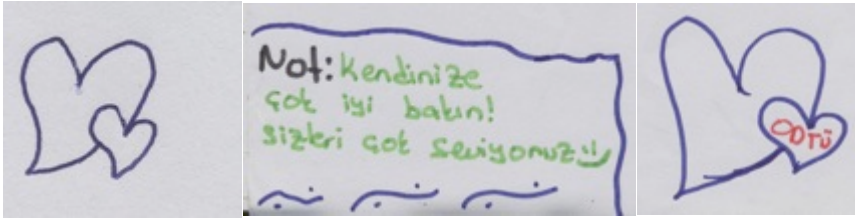 Not: Kendinize
çok iyi bakın!
Sizleri çok seviyoruz :)
ODTÜ